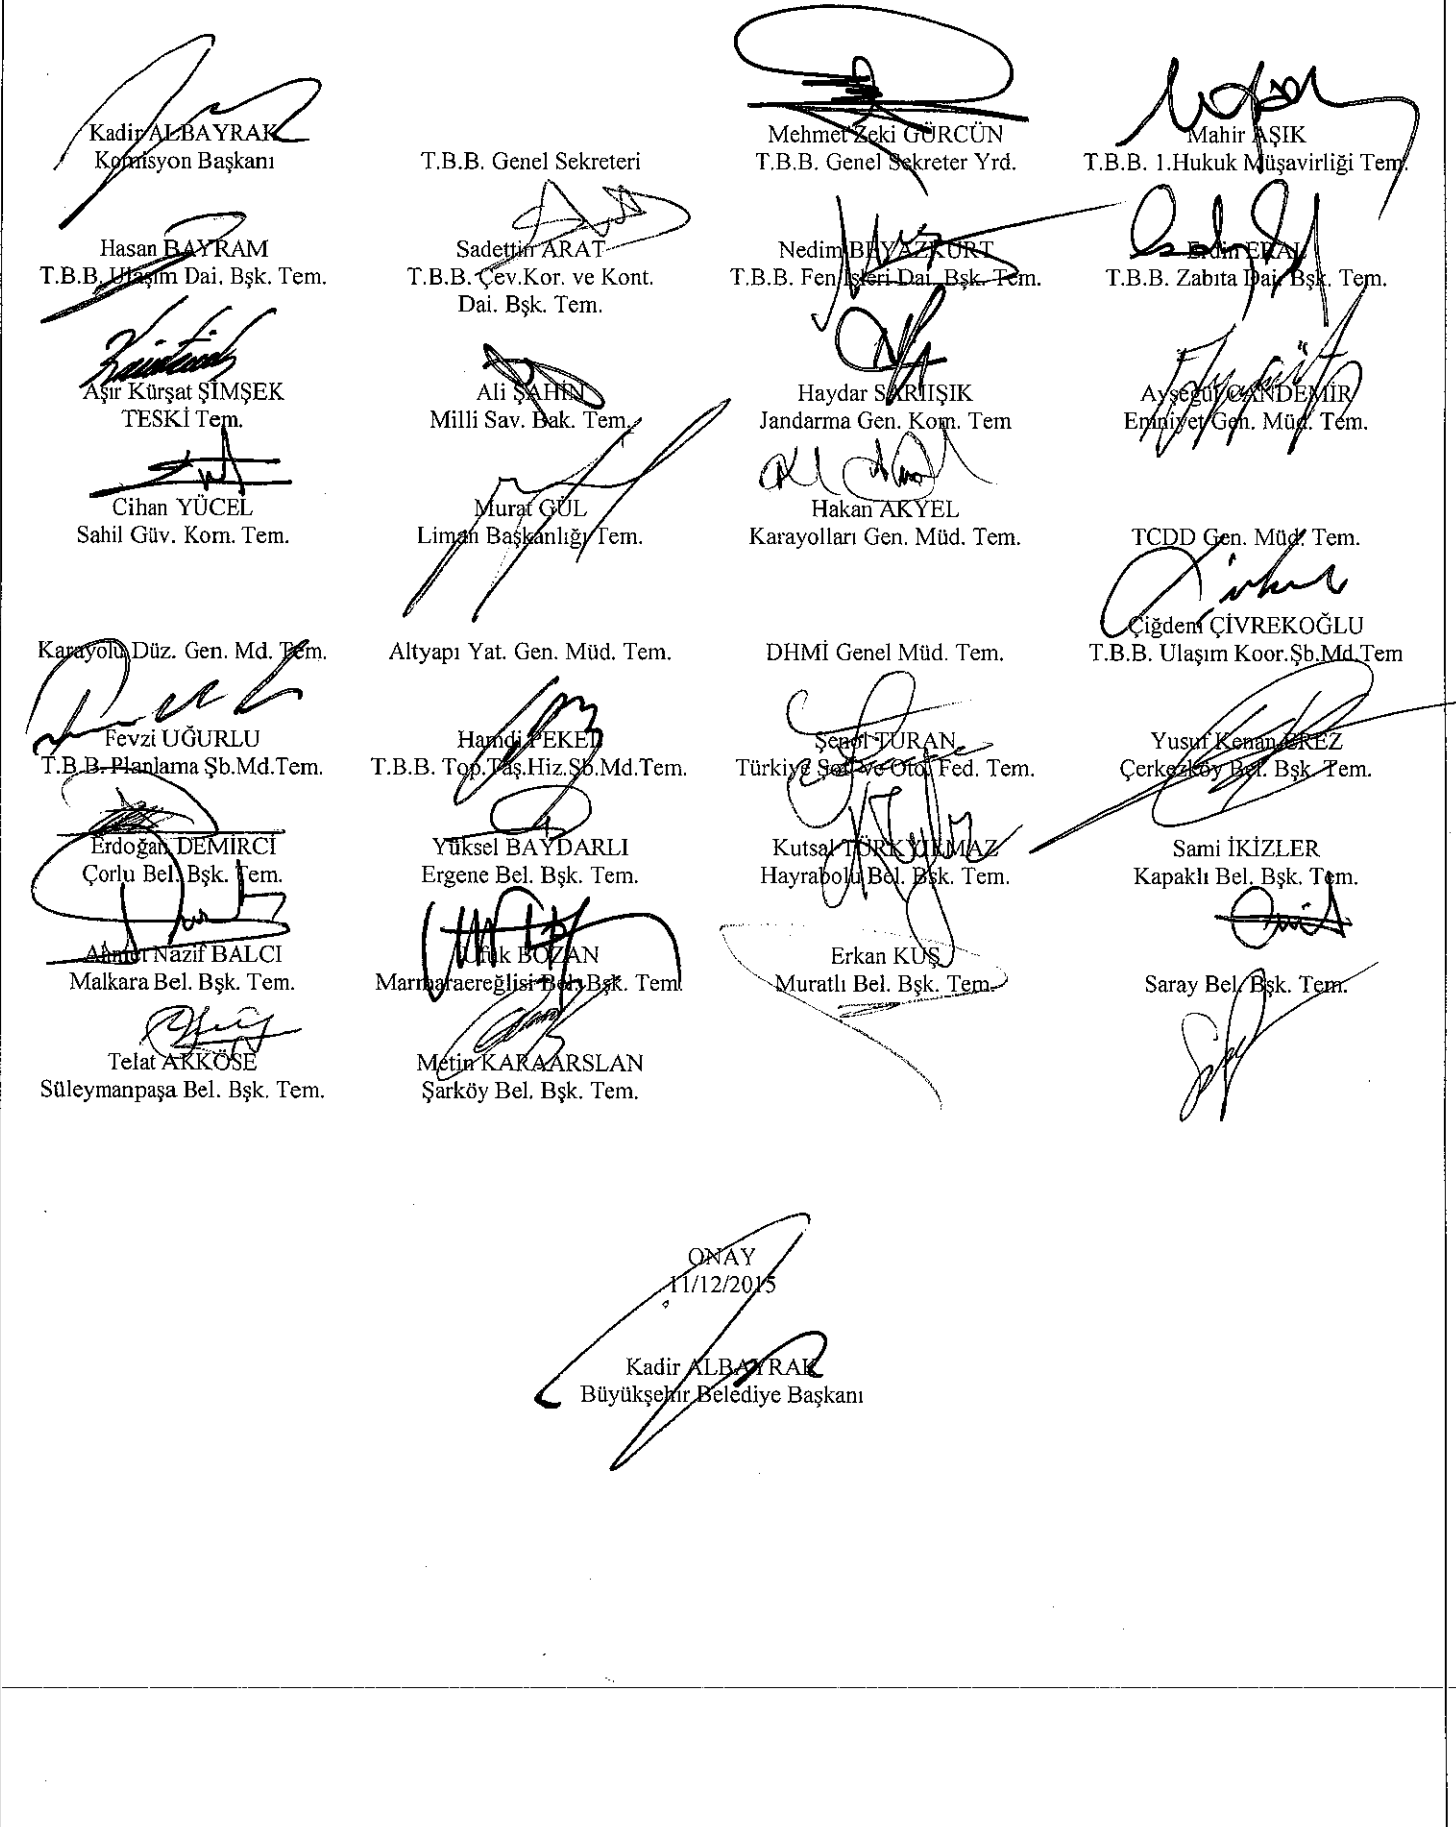 Kadir ALBAYRAK
Komisyon Başkanı
T.B.B. Genel Sekreteri
Mehmet Zeki GÜRCÜN
T.B.B. Genel Sekreter Yrd.
Mahir AŞIK
T.B.B. 1.Hukuk Müşavirliği Tem.
Hasan BAYRAM
T.B.B. Ulaşım Dai. Bşk. Tem.
Sadettin ARAT
T.B.B. Çev.Kor. ve Kont.
Dai. Bşk. Tem.
Nedim BEYAZKURT
T.B.B. Fen İşleri Dai. Bşk. Tem.
Erdin ERAL
T.B.B. Zabıta Dai. Bşk. Tem.
Aşır Kürşat ŞİMŞEK
TESKİ Tem.
Ali ŞAHİN
Milli Sav. Bak. Tem.
Haydar SARIIŞIK
Jandarma Gen. Kom. Tem
Ayşegül CANDEMİR
Emniyet Gen. Müd. Tem.
Cihan YÜCEL
Sahil Güv. Kom. Tem.
Murat GÜL
Liman Başkanlığı Tem.
Hakan AKYEL
Karayolları Gen. Müd. Tem.
TCDD Gen. Müd. Tem.
Karayolu Düz. Gen. Md. Tem.
Altyapı Yat. Gen. Müd. Tem.
DHMİ Genel Müd. Tem.
Çiğdem ÇİVREKOĞLU
T.B.B. Ulaşım Koor.Şb.Md.Tem
Fevzi UĞURLU
T.B.B. Planlama Şb.Md.Tem.
Hamdi PEKER
T.B.B. Top.Taş.Hiz.Şb.Md.Tem.
Şenol TURAN
Türkiye Şof. ve Oto. Fed. Tem.
Yusuf Kenan EREZ
Çerkezköy Bel. Bşk. Tem.
Erdoğan DEMİRCİ
Çorlu Bel. Bşk. Tem.
Yüksel BAYDARLI
Ergene Bel. Bşk. Tem.
Kutsal TÜRKYILMAZ
Hayrabolu Bel. Bşk. Tem.
Sami İKİZLER
Kapaklı Bel. Bşk. Tem.
Ahmet Nazif BALCI
Malkara Bel. Bşk. Tem.
Ufuk BOZAN
Marmaraereğlisi Bel. Bşk. Tem
Erkan KUŞ
Muratlı Bel. Bşk. Tem.
Saray Bel. Bşk. Tem.
Telat AKKÖSE
Süleymanpaşa Bel. Bşk. Tem.
Metin KARAARSLAN
Şarköy Bel. Bşk. Tem.
ONAY
11/12/2015
Kadir ALBAYRAK
Büyükşehir Belediye Başkanı